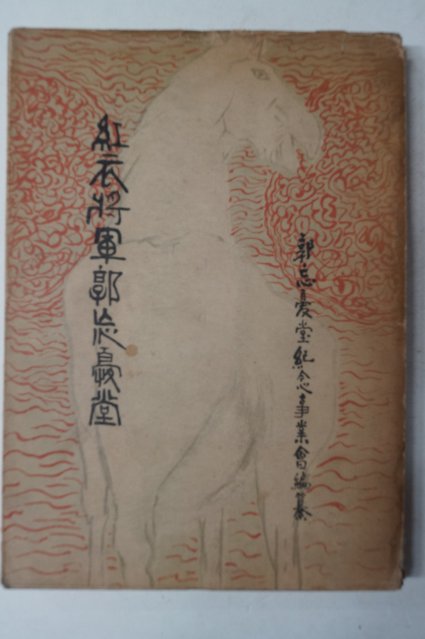 紅衣將軍郭忘憂堂
郭忘憂堂紀念事業會編纂